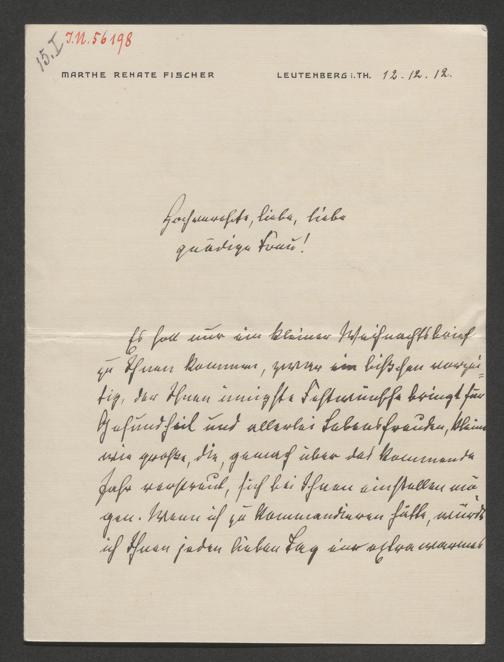 15.I
I.N. 56198
MARTHE RENATE FISCHER LEUTENBERG i. TH. 12.12.12.
Hochverehrte, liebe, liebe
gnädige Frau!
Es soll nur ein kleiner Weihnachtsbrief
zu Ihnen kommen, zwar ein bißchen vorzei-
tig, der Ihnen innigste Festwünsche bringt, für
Gesundheit und allerlei Lebensfreuden, kleine
wie große, die, genau über das kommende
Jahr verstreut, sich bei Ihnen einstellen mö-
gen. Wenn ich zu kommandieren hätte, würde
ich Ihnen jeden lieben Tag ein extra warmes